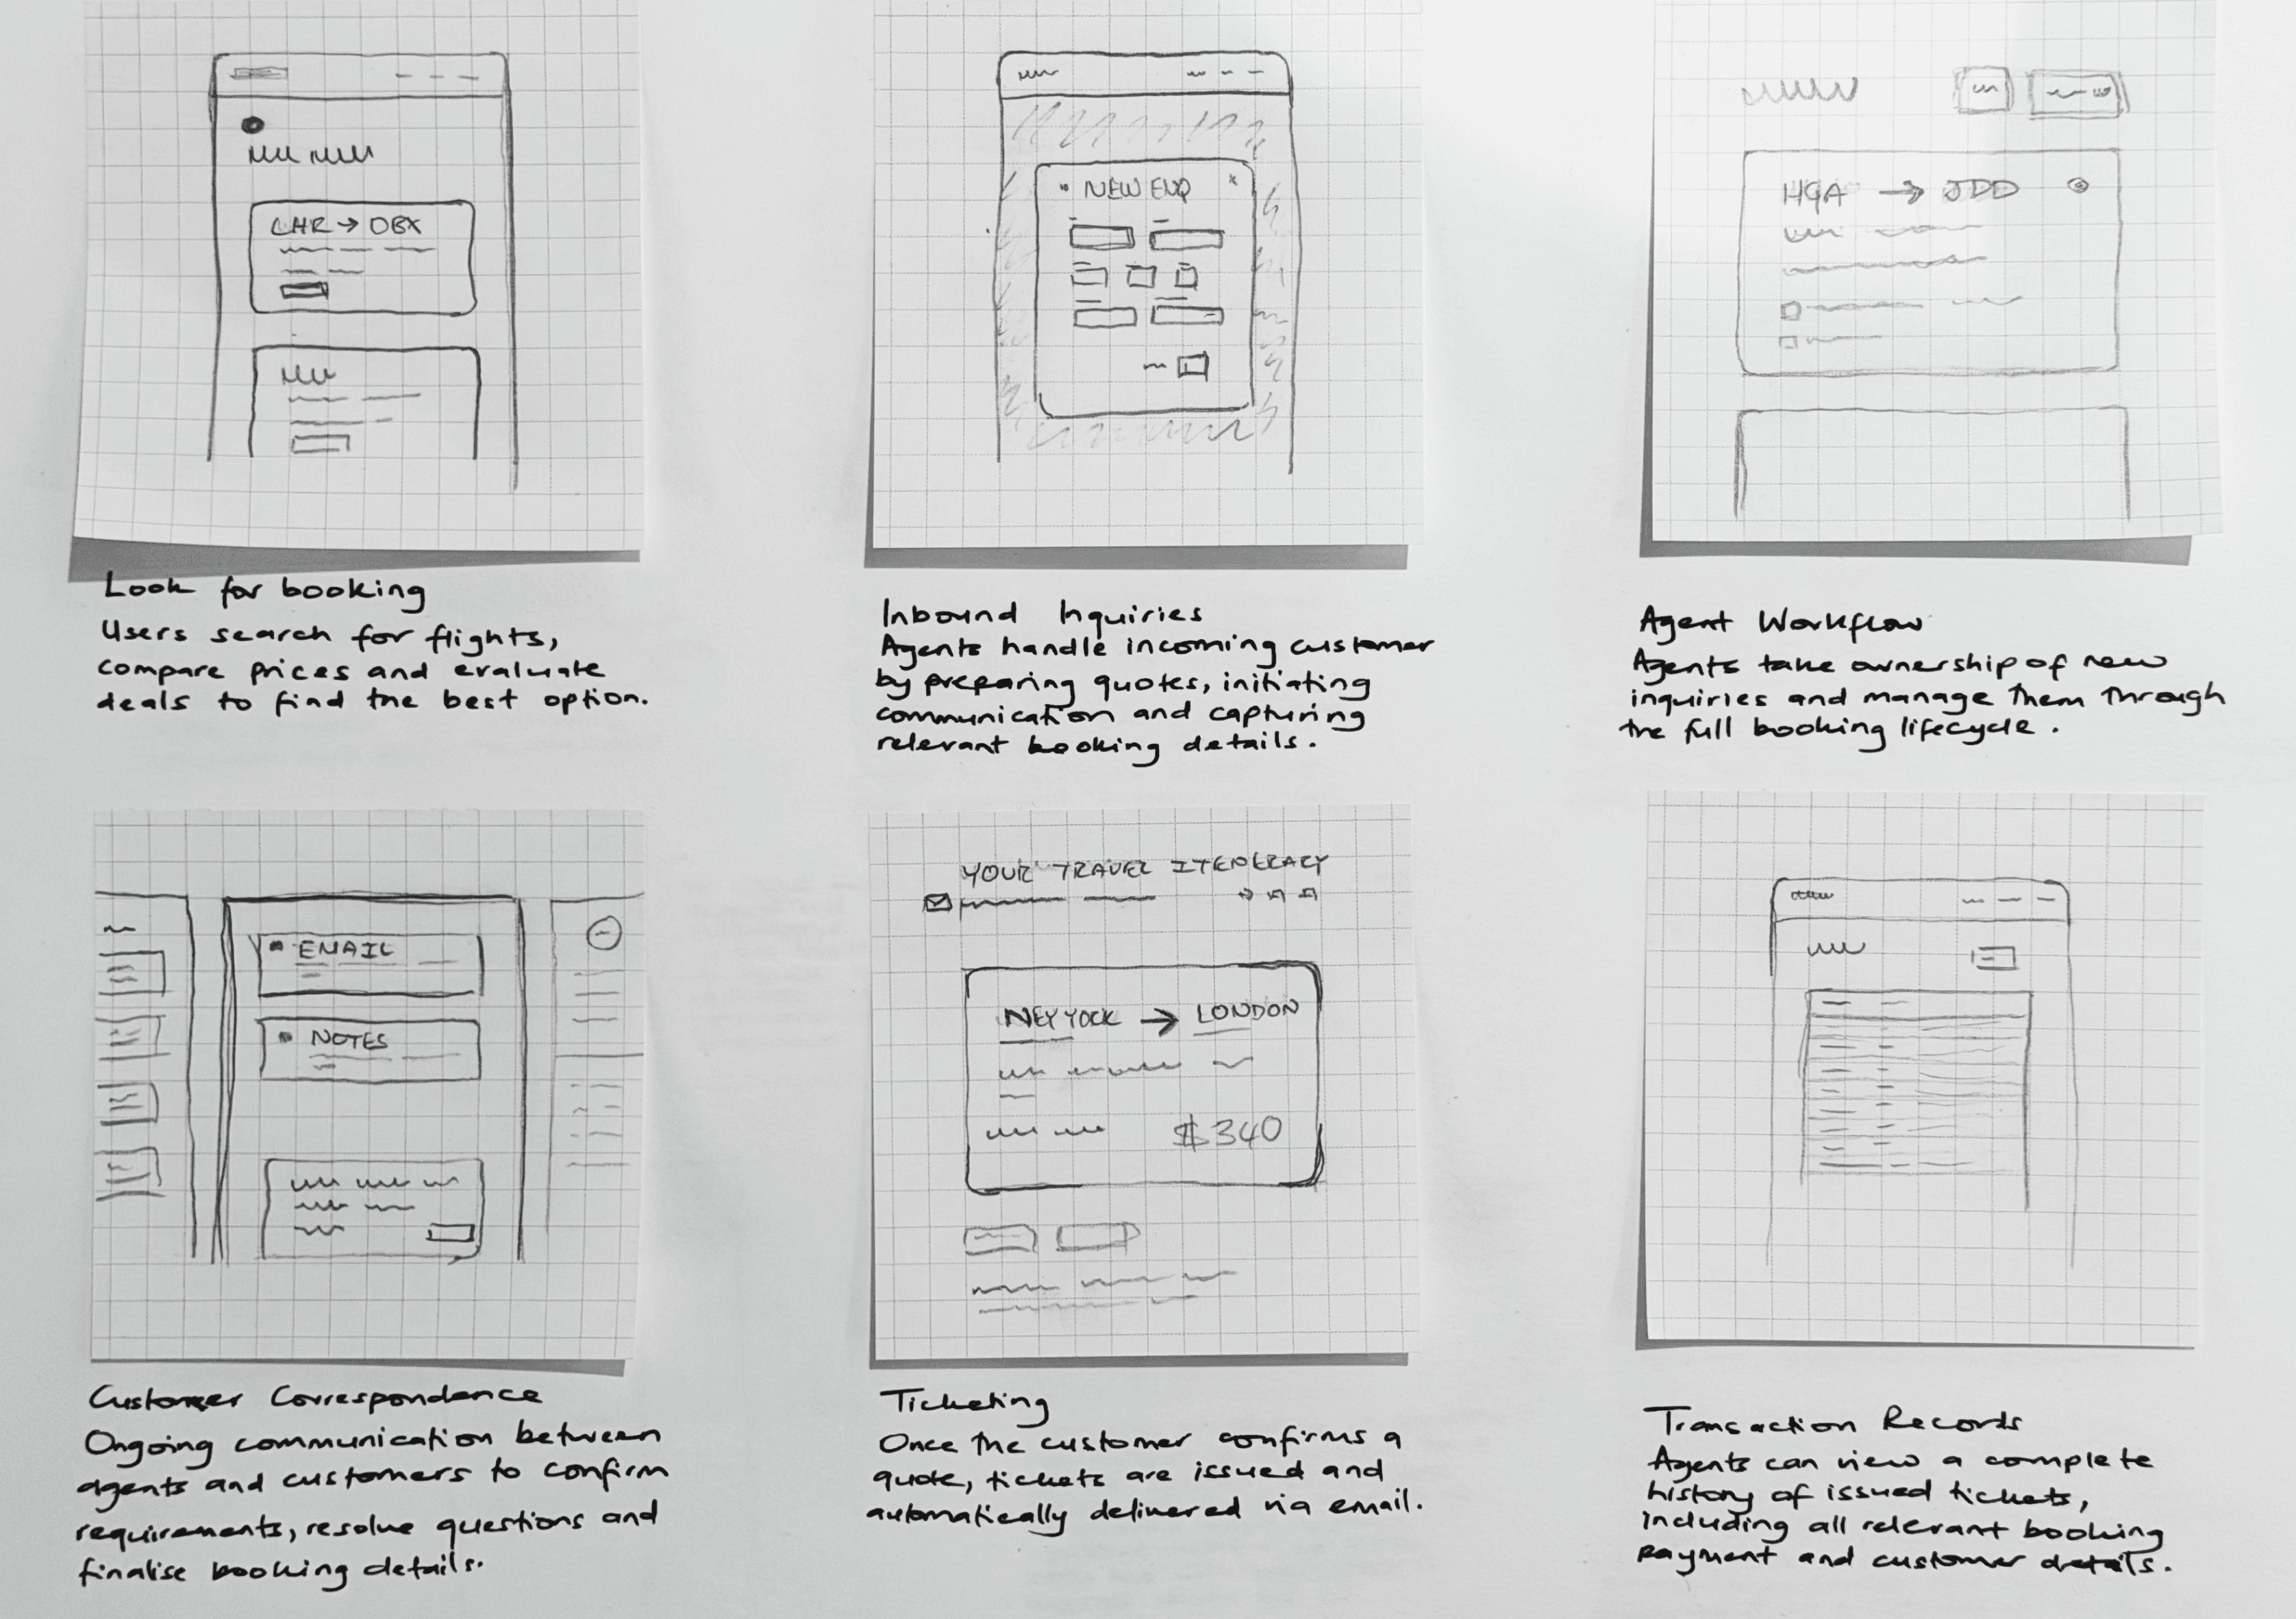 LHR → DBX
Look for booking
Users search for flights,
compare prices and evaluate
deals to find the best option.
NEW ENQ
Inbound Inquiries
Agents handle incoming customer
by preparing quotes, initiating
communication and capturing
relevant booking details.
HGA → JDD
Agent Workflow
Agents take ownership of new
inquiries and manage them through
the full booking lifecycle.
EMAIL
NOTES
Customer Correspondence
Ongoing communication between
agents and customers to confirm
requirements, resolve questions and
finalise booking details.
YOUR TRAVEL ITENERARY
NEY YORK → LONDON
$340
Ticketing
Once the customer confirms a
quote, tickets are issued and
automatically delivered via email.
Transaction Records
Agents can view a complete
history of issued tickets,
including all relevant booking
payment and customer details.